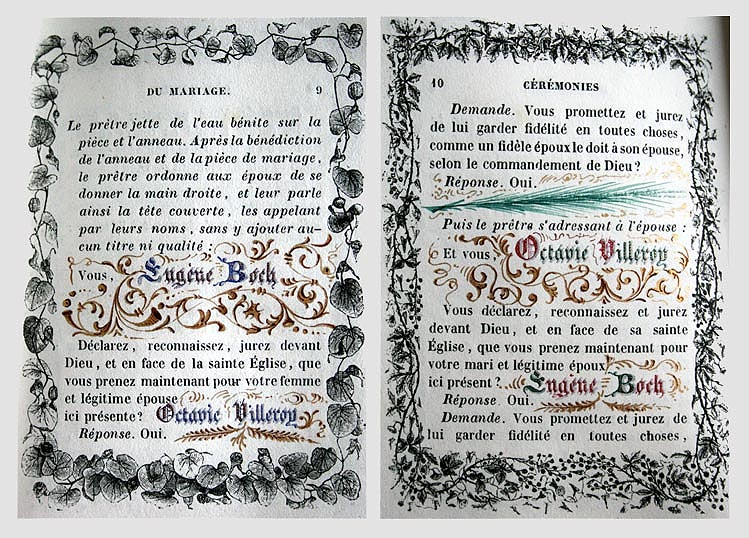 DU MARIAGE. 9
Le prêtre jette de l'eau bénite sur la
pièce et l'anneau. Après la bénédiction
de l'anneau et de la pièce de mariage,
le prêtre ordonne aux époux de se
donner la main droite, et leur parle
ainsi la tête couverte, les appelant
par leurs noms, sans y ajouter au-
cun titre ni qualité :
Vous, Eugène Boch
Déclarez, reconnaissez, jurez devant
Dieu, et en face de la sainte Église, que
vous prenez maintenant pour votre femme
et légitime épouse
ici présente? Octavie Villeroy
Réponse. Oui.
10 CÉRÉMONIES
Demande. Vous promettez et jurez
de lui garder fidélité en toutes choses,
comme un fidèle époux le doit à son épouse,
selon le commandement de Dieu?
Réponse. Oui.
Puis le prêtre s'adressant à l'épouse :
Et vous Octavie Villeroy
Vous déclarez, reconnaissez et jurez
devant Dieu, et en face de sa sainte
Église, que vous prenez maintenant pour
votre mari et légitime époux
ici présent? Eugène Boch
Réponse. Oui.
Demande. Vous promettez et jurez de
lui garder fidélité en toutes choses,